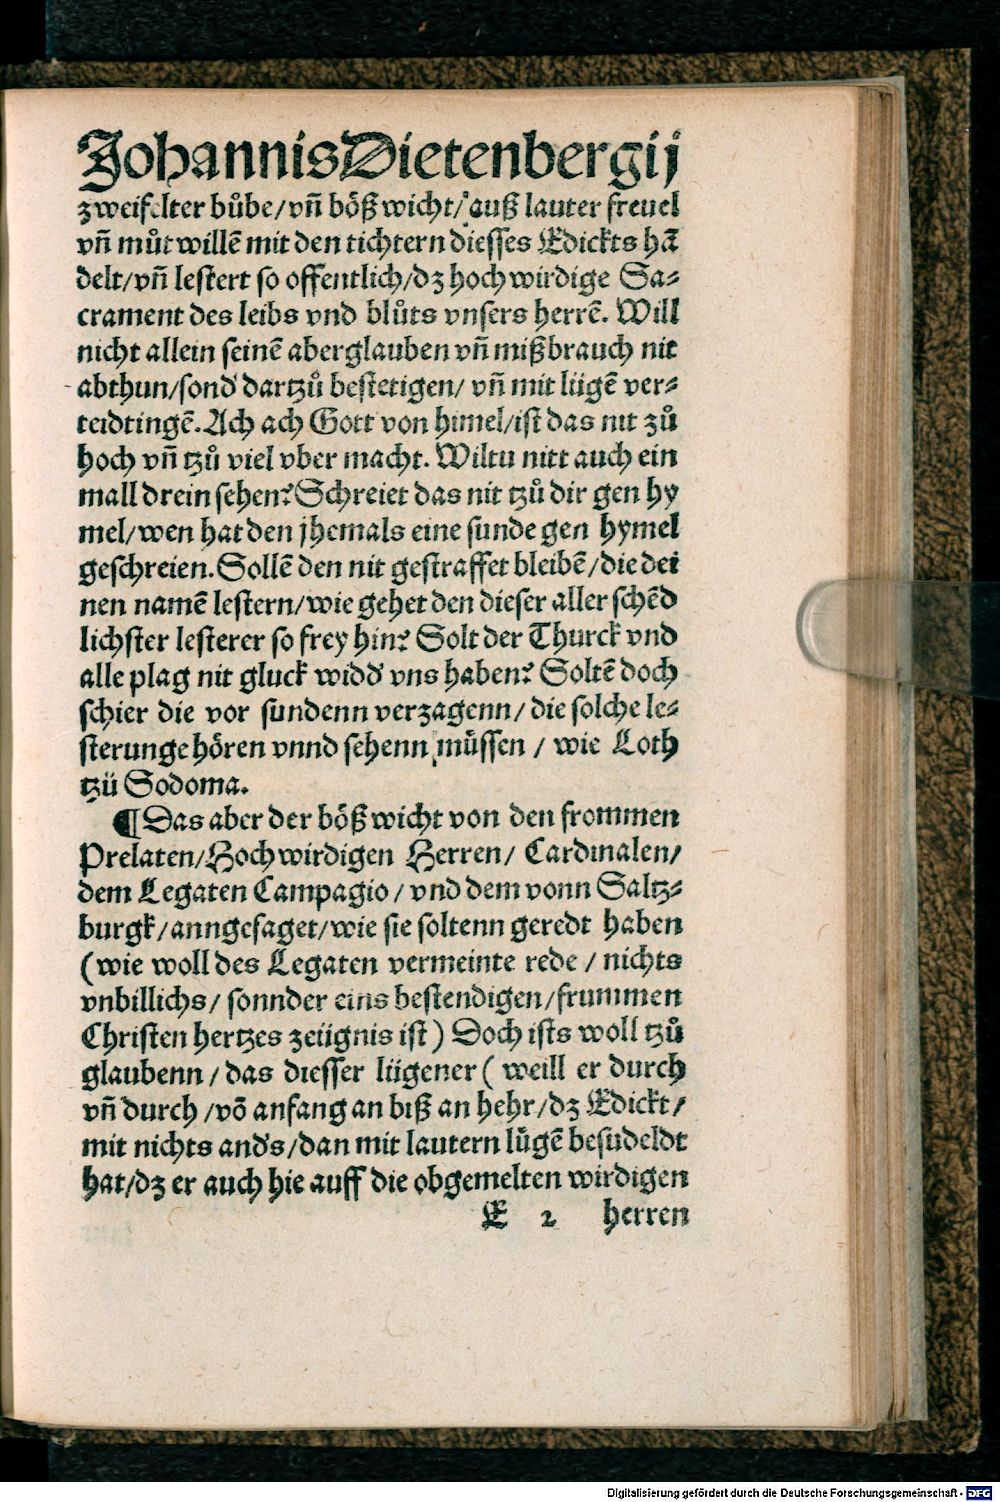 Johannis Dietenbergij
zweifelter bůbe/vñ böß wicht/auß lauter freuel
vñ můt willē mit den tichtern diesses Edickts hā
delt/vñ lestert so offentlich/dz hoch wirdige Sa⸗
crament des leibs vnd blůts vnsers herrē. Will
nicht allein seinē aberglauben vñ mißbrauch nit
abthun/sond̛ dartzů bestetigen/ vñ mit lügē ver⸗
teidtingē. Ach ach Gott von himel/ist das nit zů
hoch vñ tzů viel vber macht. Wiltu nitt auch ein
mall drein sehen? Schreiet das nit tzů dir gen hy
mel/wen hat den jhemals eine sunde gen hymel
geschreien. Sollē den nit gestraffet bleibē/die dei
nen namē lestern/wie gehet den dieser aller schēd
lichster lesterer so frey hin? Solt der Thurck vnd
alle plag nit gluck widd̛ vns haben? Soltē doch
schier die vor sundenn verzagenn/die solche le⸗
sterunge hören vnnd sehenn müssen / wie Loth
tzü Sodoma.
¶ Das aber der böß wicht von den frommen
Prelaten/Hochwirdigen Herren/ Cardinalen/
dem Legaten Campagio/ vnd dem vonn Saltz⸗
burgk/anngesaget/wie sie soltenn geredt haben
(wie woll des Legaten vermeinte rede / nichts
vnbillichs/ sonnder eins bestendigen/frummen
Christen hertzes zeügnis ist) Doch ists woll tzů
glaubenn/das diesser lügener ( weill er durch
vñ durch/vō anfang an biß an hehr/dz Edickt/
mit nichts and̛s/dan mit lautern lügē besudeldt
hat/dz er auch hie auff die obgemelten wirdigen
E 2 herren
Digitalisierung gefördert durch die Deutsche Forschungsgemeinschaft - DFG